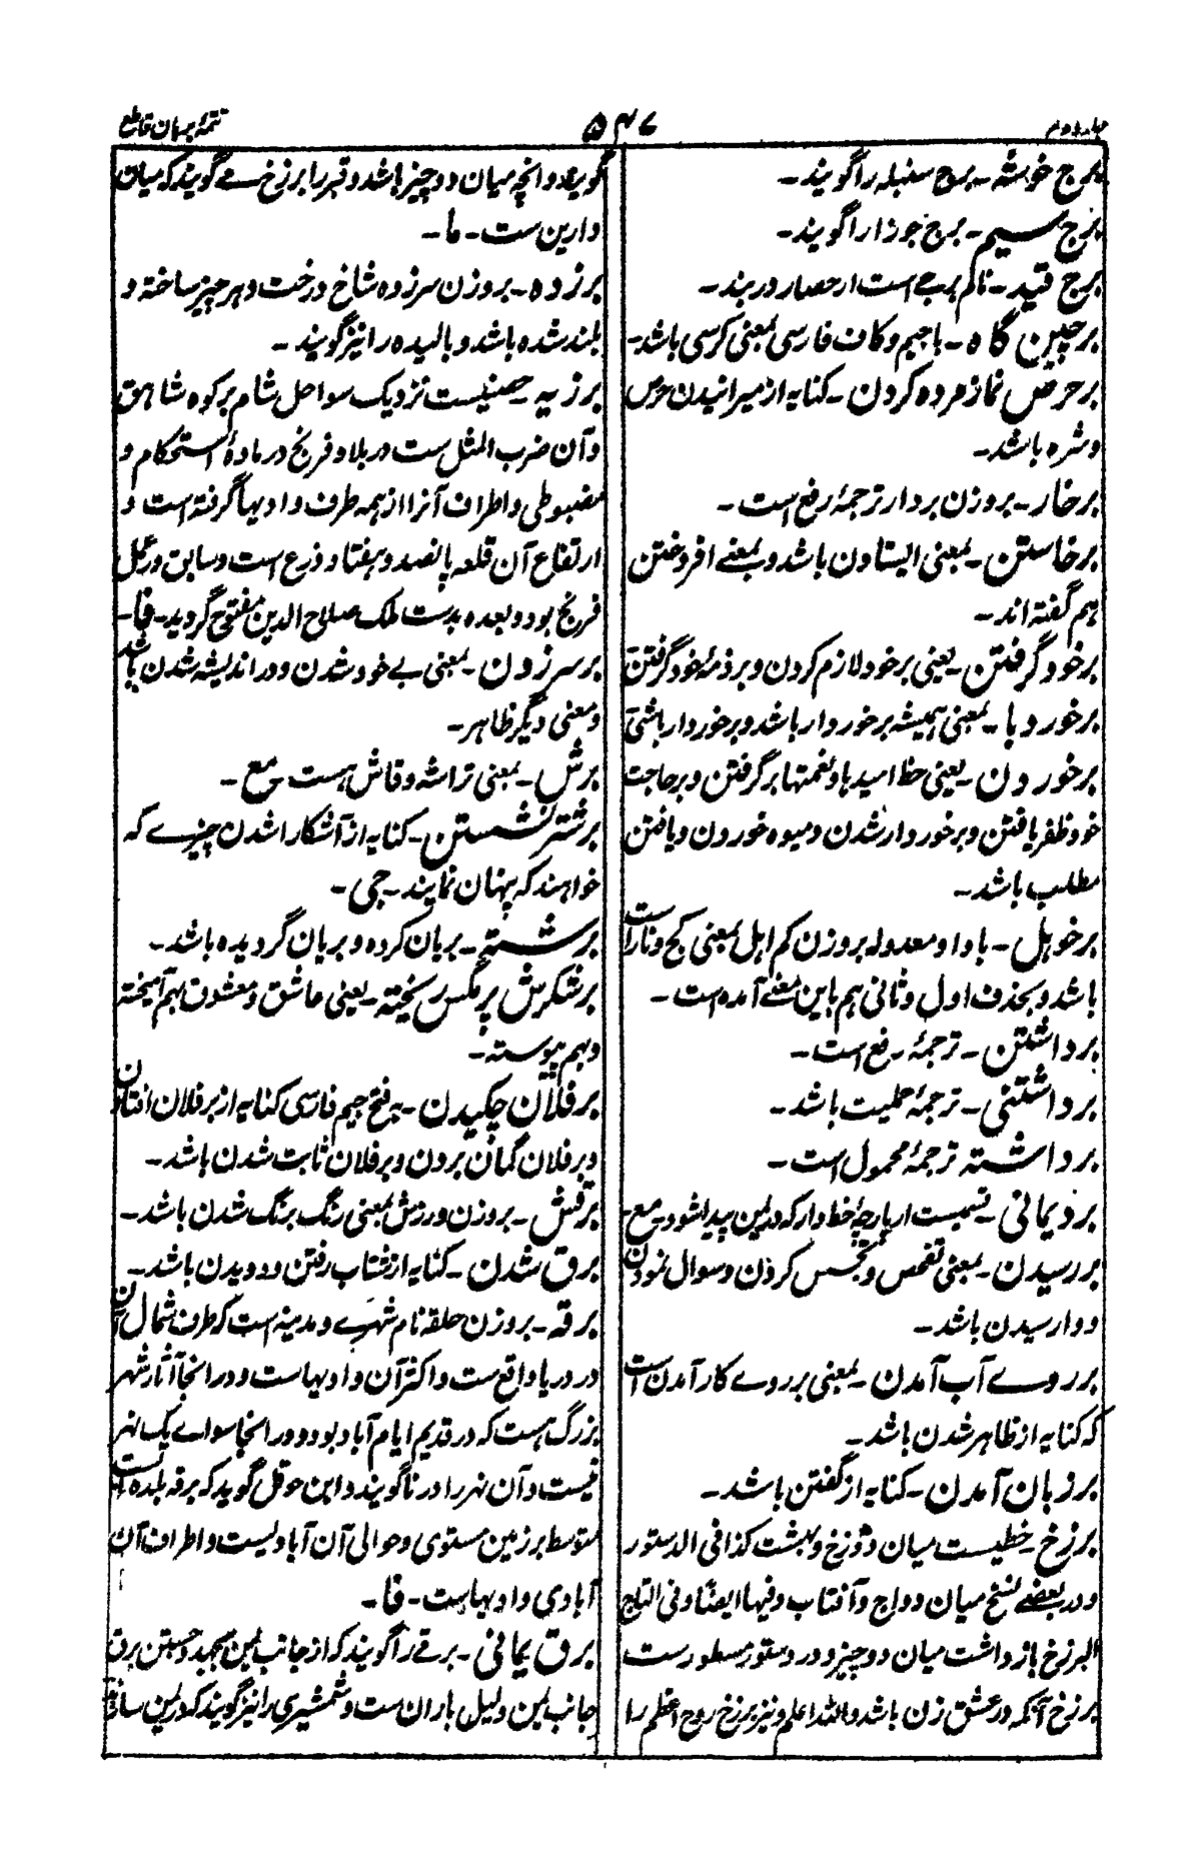 جلد دوم
۵۴۷
تتمۂ برہان قاطع
برج خوشہ ۔ برج سنبلہ را گویند ۔
برج سیم ۔ برج جوزا را گویند ۔
برج قید ۔ نام برجے است از حصار دربند ۔
برچین گاہ ۔ باجیم و کاف فارسی بمعنی کرسی باشد ۔
برحرص نماز مردہ کردن ۔ کنایہ از میرانیدن حرص
و شرہ باشد ۔
برخار ۔ بروزن بردار ترجمۂ رفع است ۔
برخاستن ۔ بمعنی ایستاون باشد و بمعنے افروختن
ہم گفتہ اند ۔
برخود گرفتن ۔ یعنی برخود لازم کردن و بر ذمۂ خود گرفتن
برخوردبا ۔ بمعنی ہمیشہ برخوردار باشد و برخوردار باشی
برخوردن ۔ یعنی حظ امیدہا و نعمتہا برگرفتن و بر حاجت
خود ظفر یافتن و برخوردار شدن و میوہ خوردن و یافتن
مطلب باشد ۔
برخوہل ۔ باواو معدولہ بروزن کم اہل بمعنی کج و ناراست
باشد و بحذف اول و ثانی ہم باین معنے آمدہ است ۔
برداشتن ۔ ترجمۂ رفع است ۔
برداشتنی ۔ ترجمۂ حملیت باشد ۔
برداشتہ ترجمۂ محمول است ۔
برد یمانی ۔ قسمیست از پارچۂ خطدار کہ در یمن پیدا شود ۔ مع ۔
بررسیدن ۔ بمعنی تفحص و تجسس کردن و سوال نمودن
و وارسیدن باشد ۔
برروے آب آمدن ۔ بمعنی برروے کار آمدن است
کہ کنایہ از ظاہر شدن باشد ۔
برزبان آمدن ۔ کنایہ از گفتن باشد ۔
برزخ خطیست میان دوزخ و بہشت کذا فی الدستور
و در بعضے نسخ میان دواج و آفتاب و فیہا ایضاً و فی التاج
البرزخ بازداشت میان دو چیز و در دستور مسطورست
برزخ آنکہ در عشق زن باشد واللہ اعلم و نیز برزخ روح اعظم را
گویند و انچہ میان دو چیز باشد و قبر را برزخ مے گویند کہ میان
دارین ست ۔ ما ۔
برزدہ ۔ بروزن سرزدہ شاخ درخت و ہر چیز ساختہ و
بلند شدہ باشد و بالیدہ را نیز گویند ۔
برزیہ ۔ حصنیست نزدیک سواحل شام بر کوہ شاہق
و آن ضرب المثل ست در بلاد فرنج در مادۂ استحکام و
مضبوطی و اطراف آنرا از ہمہ طرف وادیہا گرفتہ است و
ارتفاع آن قلعہ پانصد و ہفتاد ذرع است و سابق در عمل
فرنج بود و بعدہ بدست ملک صلاح الدین مفتوح گردید ۔ فا ۔
برسرزدن ۔ بمعنی بے خود شدن و در اندیشہ شدن باشد
و معنی دیگر ظاہر ۔
برش ۔ بمعنی تراشہ و قاش ہست مع ۔
برشتر نشستن ۔ کنایہ از آشکارا شدن چیزے کہ
خواہند کہ پنہان نمایند ۔ جی ۔
برشتہ ۔ بریان کردہ و بریان گردیدہ باشد ۔
برشکرش پر مگس ریختہ ۔ یعنی عاشق و معشوق بہم آمیختہ
و بہم پیوستہ ۔
برفلان چکیدن ۔ بہ فتح جیم فارسی کنایہ از بر فلان افتادن
و بر فلان گمان بردن و بر فلان ثابت شدن باشد ۔
برفش ۔ بروزن ورزش بمعنی رنگ برنگ شدن باشد ۔
برق شدن ۔ کنایہ از شتاب رفتن و دویدن باشد ۔
برقہ ۔ بروزن حلقہ نام شہرے و مدینہ است کہ طرف شمال آن
در دریا واقع ست و اکثر آن وادیہاست و در انجا آثار شہر
بزرگ ہست کہ در قدیم ایام آباد بود و در انجا سواے یک نہر
نیست و آن نہر را درنا گویند و ابن حوقل گوید کہ برقہ بلدہ است
متوسط بر زمین مستوی و حوالی آن آبادیست و اطراف آن
آبادی وادیہاست ۔ فا ۔
برق یمانی ۔ برقے را گویند کہ از جانب یمن بجہد و جستن برق
جانب یمن دلیل باران ست و شمشیری را نیز گویند کہ در یمن ساختہ